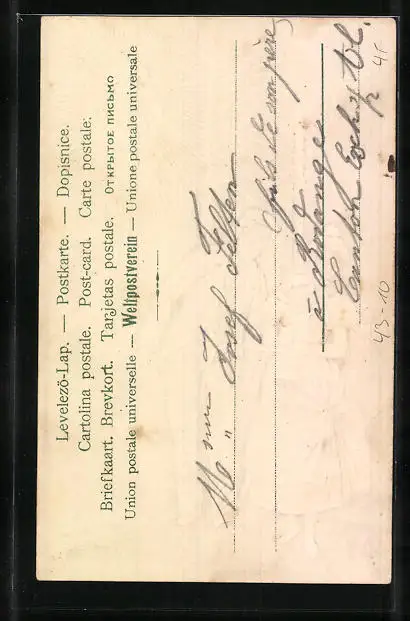 Levelező-Lap. — Postkarte. — Dopisnice.
Cartolina postale. Post-card. Carte postale.
Briefkaart. Brevkort. Tarjetas postale. ОТКРЫТОЕ ПИСЬМО
Union postale universelle — Weltpostverein — Unione postale universale
Josef Felten
(fils de son père)
à
Canton Esch s/
43-10